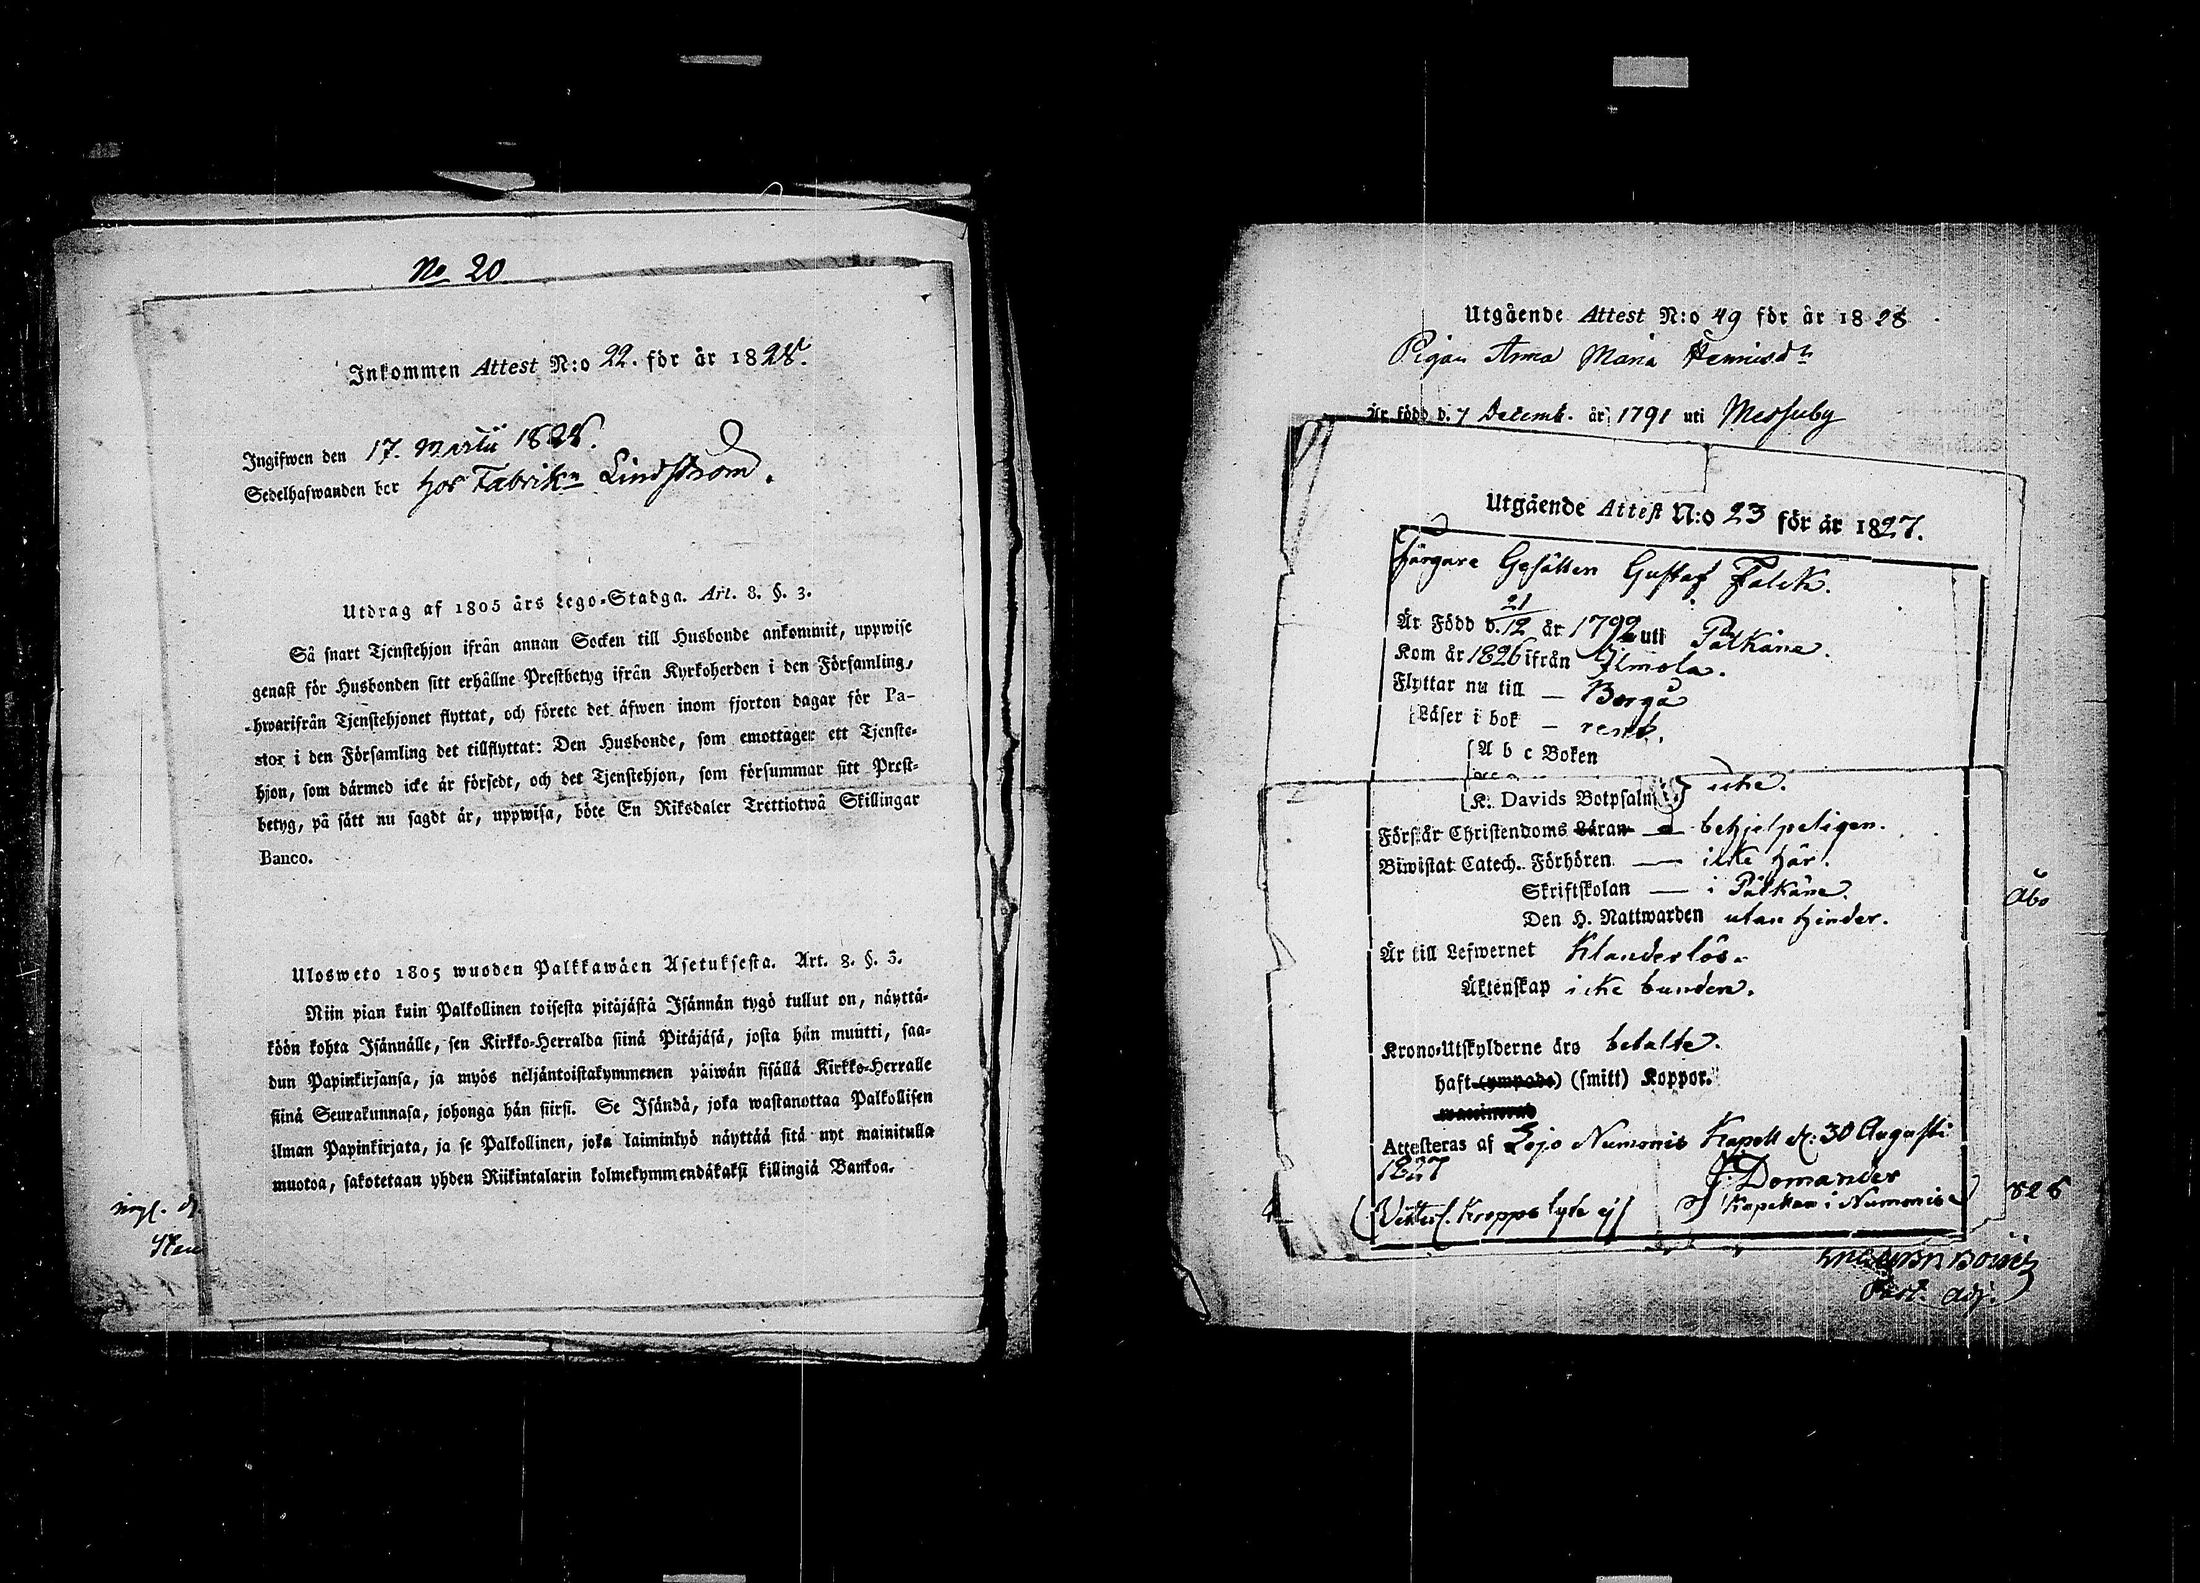 No 20
Inkommen Attest N:o 22. för år 1828.
Ingifwen den 17. Martii 1828.
Sedelhafwanden bor hos Fabrikn Lindström.
Utdrag af 1805 års Lego-Stadga. Art. 8. §. 3.
Så snart Tjenstehjon ifrån annan Socken till Husbonde ankommit, uppwise
genast för Husbonden sitt erhållne Prestbetyg ifrån Kyrkoherden i den Församling,
hwarifrån Tjenstehjonet flyttat, och förete det äfwen inom fjorton dagar för Pa-
stor i den Församling det tillflyttat: Den Husbonde, som emottager ett Tjenste-
hjon, som därmed icke är försedt, och det Tjenstehjon, som försummar sitt Prest-
betyg, på sätt nu sagdt är, uppwisa, böte En Riksdaler Trettiotwå Skillingar
Banco.
Ulosweto 1805 wuoden Palkkawäen Asetuksesta. Art. 8. §. 3.
Niin pian kuin Palkollinen toisesta pitäjästä Isännän tygö tullut on, näyttä-
köön kohta Isännälle, sen Kirkko-Herralda siinä Pitäjäsä, josta hän muutti, saa-
dun Papinkirjansa, ja myös neljäntoistakymmenen päiwän sisällä Kirkko-Herralle
siinä Seurakunnasa, johonga hän siirsi. Se Isändä, joka wastanottaa Palkollisen
ilman Papinkirjata, ja se Palkollinen, joka laiminlyö näyttää sitä nyt mainitulla
muotoa, sakotetaan yhden Riikintalarin kolmekymmendäkaksi killingiä Bankoa.
Utgående Attest N:o 49 för år 1828
Pigan Anna Maria
Är född d. 7 Decemb. år 1791 uti Messuby
Utgående Attest N:o 23 för år 1827.
Färgare Gesällen Gustaf Falck.
Är Född d. 21/12 år 1792 uti Pälkäne.
Kom år 1826 ifrån Ilmola.
Flyttar nu till — Borgå
Läser i bok — rent.
A b c Boken
K. Davids Botpsalm icke.
Förstår Christendoms Läran — behjelpeligen.
Biwistat Catech. Förhören — icke här.
Skriftskolan — i Pälkäne.
Den H. Nattwarden utan hinder.
Är till Lefwernet Klanderlös.
Äktenskap icke bunden.
Krono-Utskylderne äro betalte.
haft (ympade) (smitt) Koppor.
Attesteras af Lojo Numonis Kapell d: 30 Augusti
1827 J. Domander
Kapellan i Numonis
Kroppslyte ej)
Åbo
828
Past. adj.